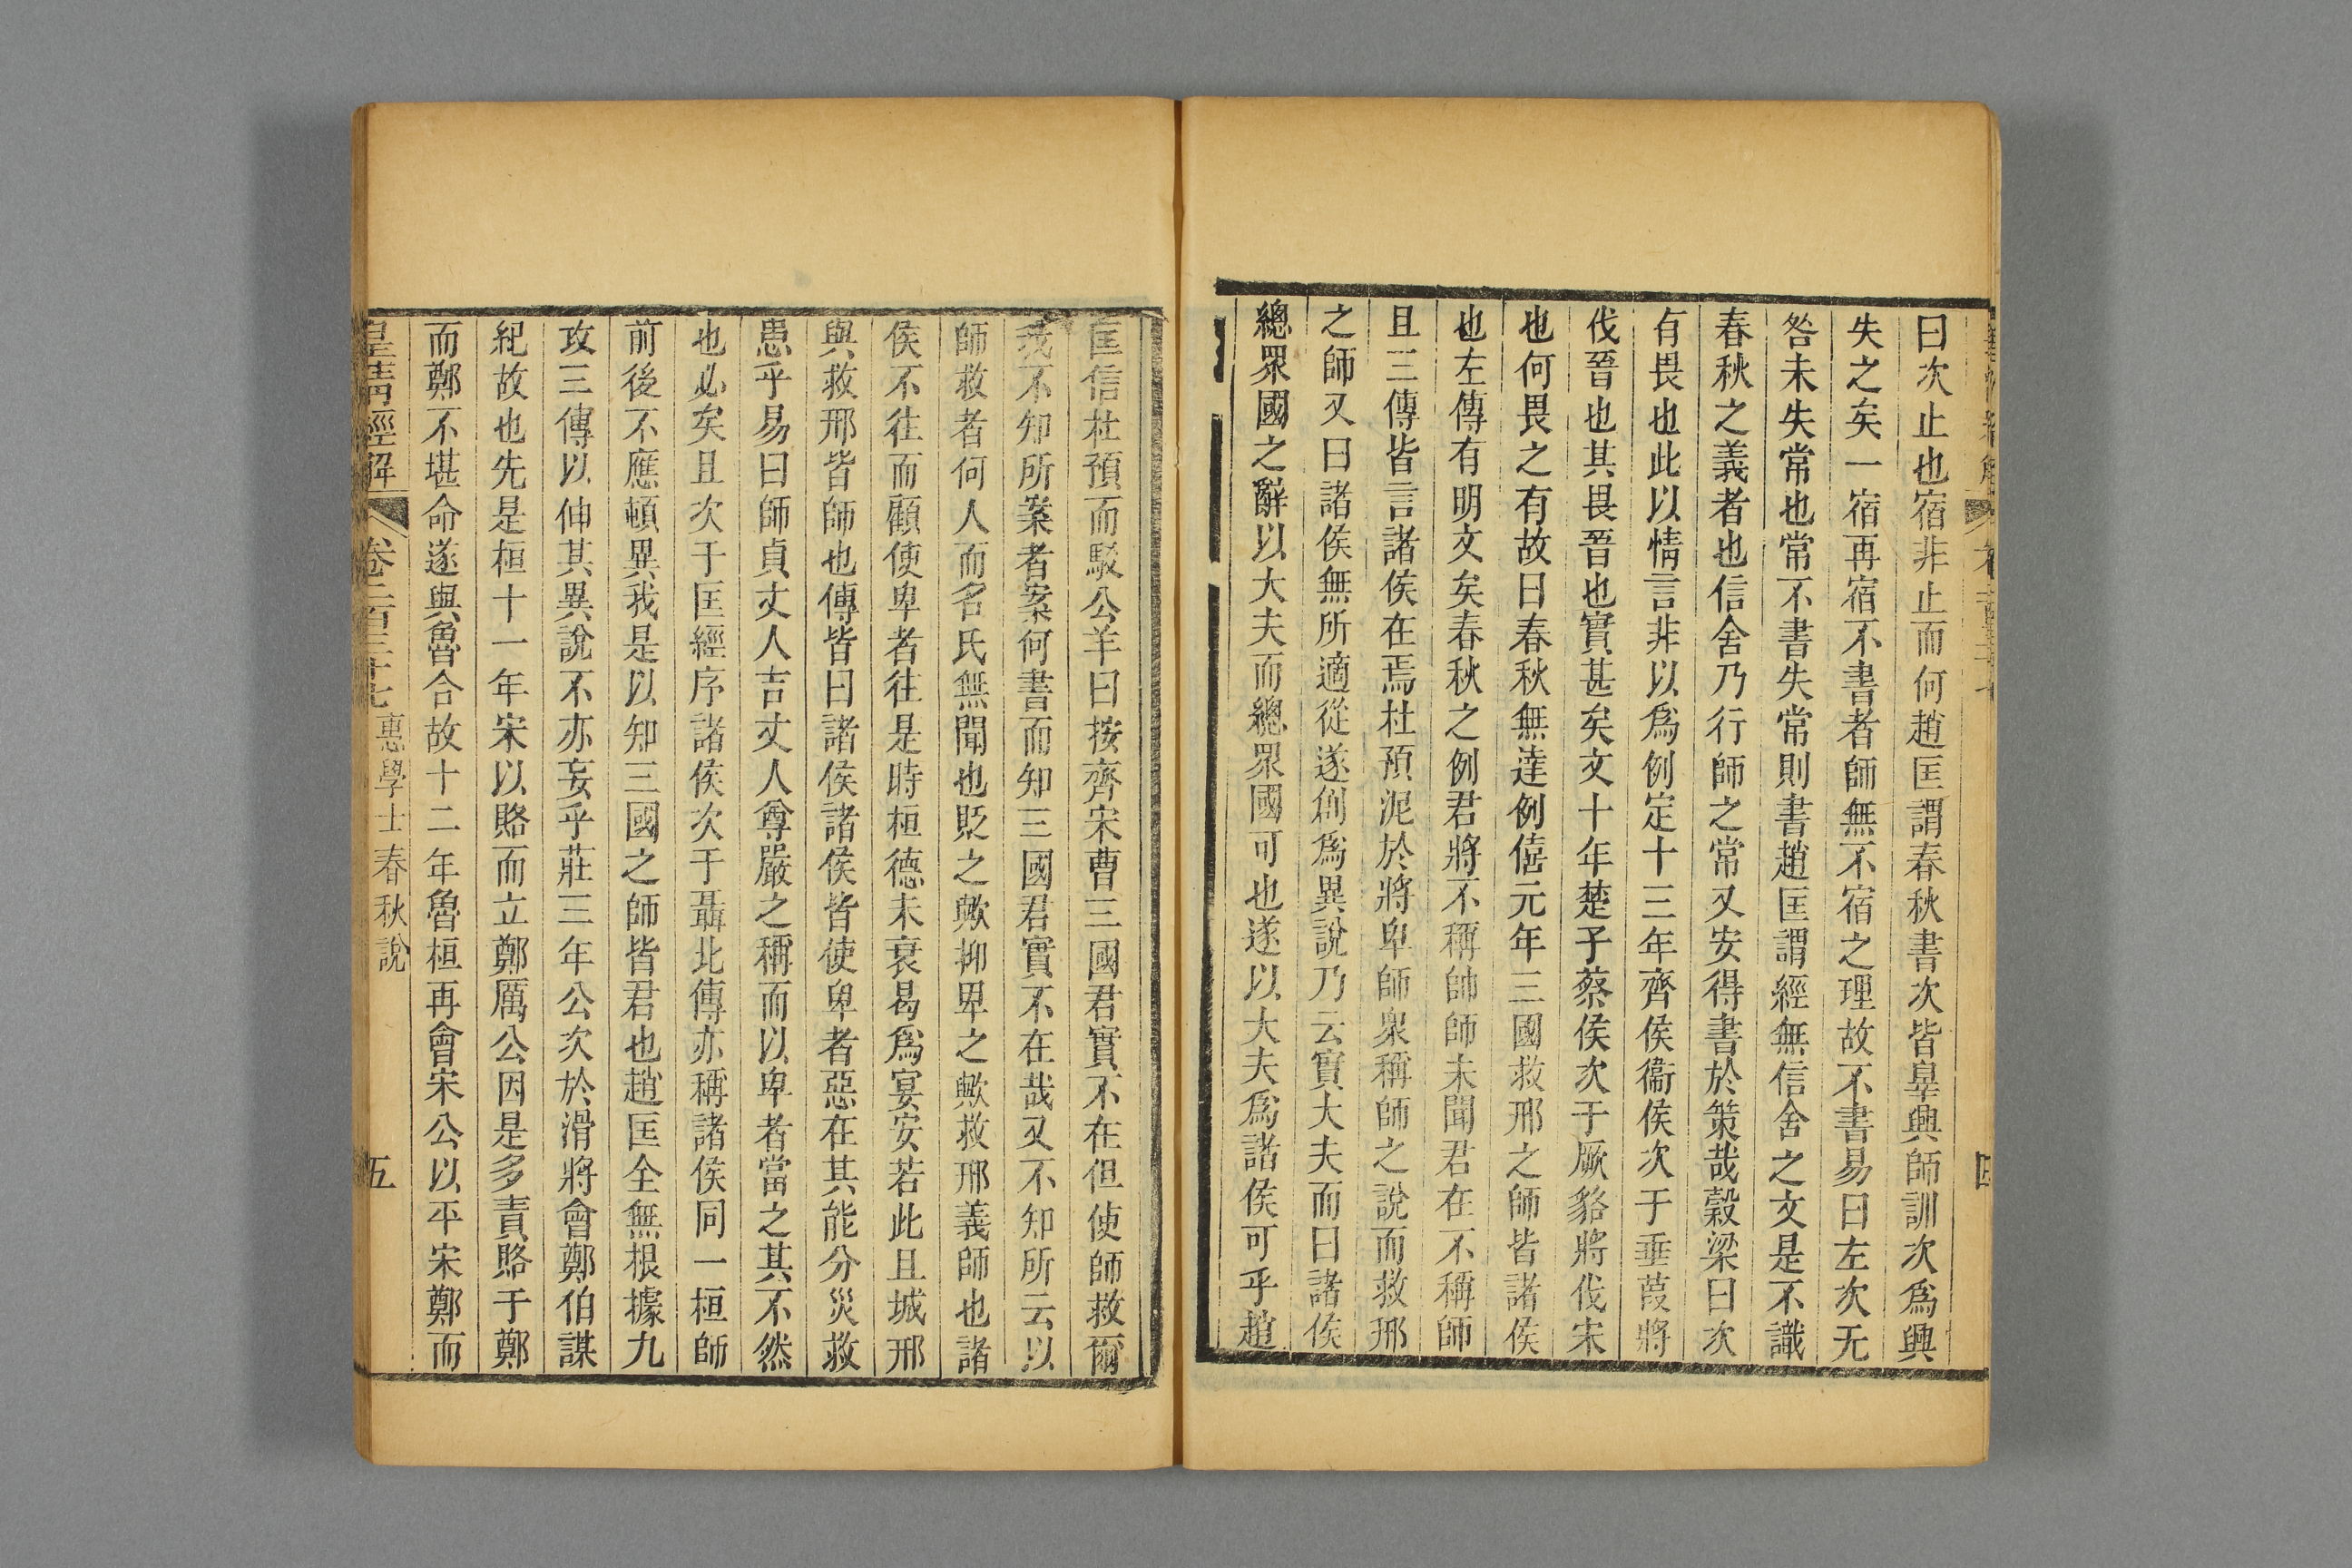 曰次止也宿非止而何趙匡謂春秋書次皆辠興師訓次爲興
失之矣一宿再宿不書者師無不宿之理故不書易曰左次无
咎未失常也常不書失常則書趙匡謂經無信舍之文是不識
春秋之義者也信舍乃行師之常又安得書於策哉穀梁曰次
有畏也此以情言非以爲例定十三年齊侯衞侯次于垂葭將
伐晉也其畏晉也實甚矣文十年楚子蔡侯次于厥貉將伐宋
也何畏之有故曰春秋無達例僖元年三國救邢之師皆諸侯
也左傳有明文矣春秋之例君將不稱帥師未聞君在不稱師
且三傳皆言諸侯在焉杜預泥於將卑師衆稱師之說而救邢
之師又曰諸侯無所適從遂創爲異說乃云實大夫而曰諸侯
總眾國之辭以大夫而總眾國可也遂以大夫爲諸侯可乎趙
匡信杜預而駁公羊曰按齊宋曹三國君實不在但使師救爾
我不知所案者案何書而知三國君實不在哉又不知所云以
師救者何人而名氏無聞也貶之歟抑卑之歟救邢義師也諸
侯不往而顧使卑者往是時桓德未衰曷爲宴安若此且城邢
與救邢皆師也傳皆曰諸侯諸侯皆使卑者惡在其能分災救
患乎易曰師貞丈人吉丈人尊嚴之稱而以卑者當之其不然
也必矣且次于匡經序諸侯次于聶北傳亦稱諸侯同一桓師
前後不應頓異我是以知三國之師皆君也趙匡全無根據九
攻三傳以伸其異說不亦妄乎莊三年公次於滑將會鄭伯謀
紀故也先是桓十一年宋以賂而立鄭厲公因是多責賂于鄭
而鄭不堪命遂與魯合故十二年魯桓再會宋公以平宋鄭而
皇淸經解 卷二百三十七 惠學士春秋說 五